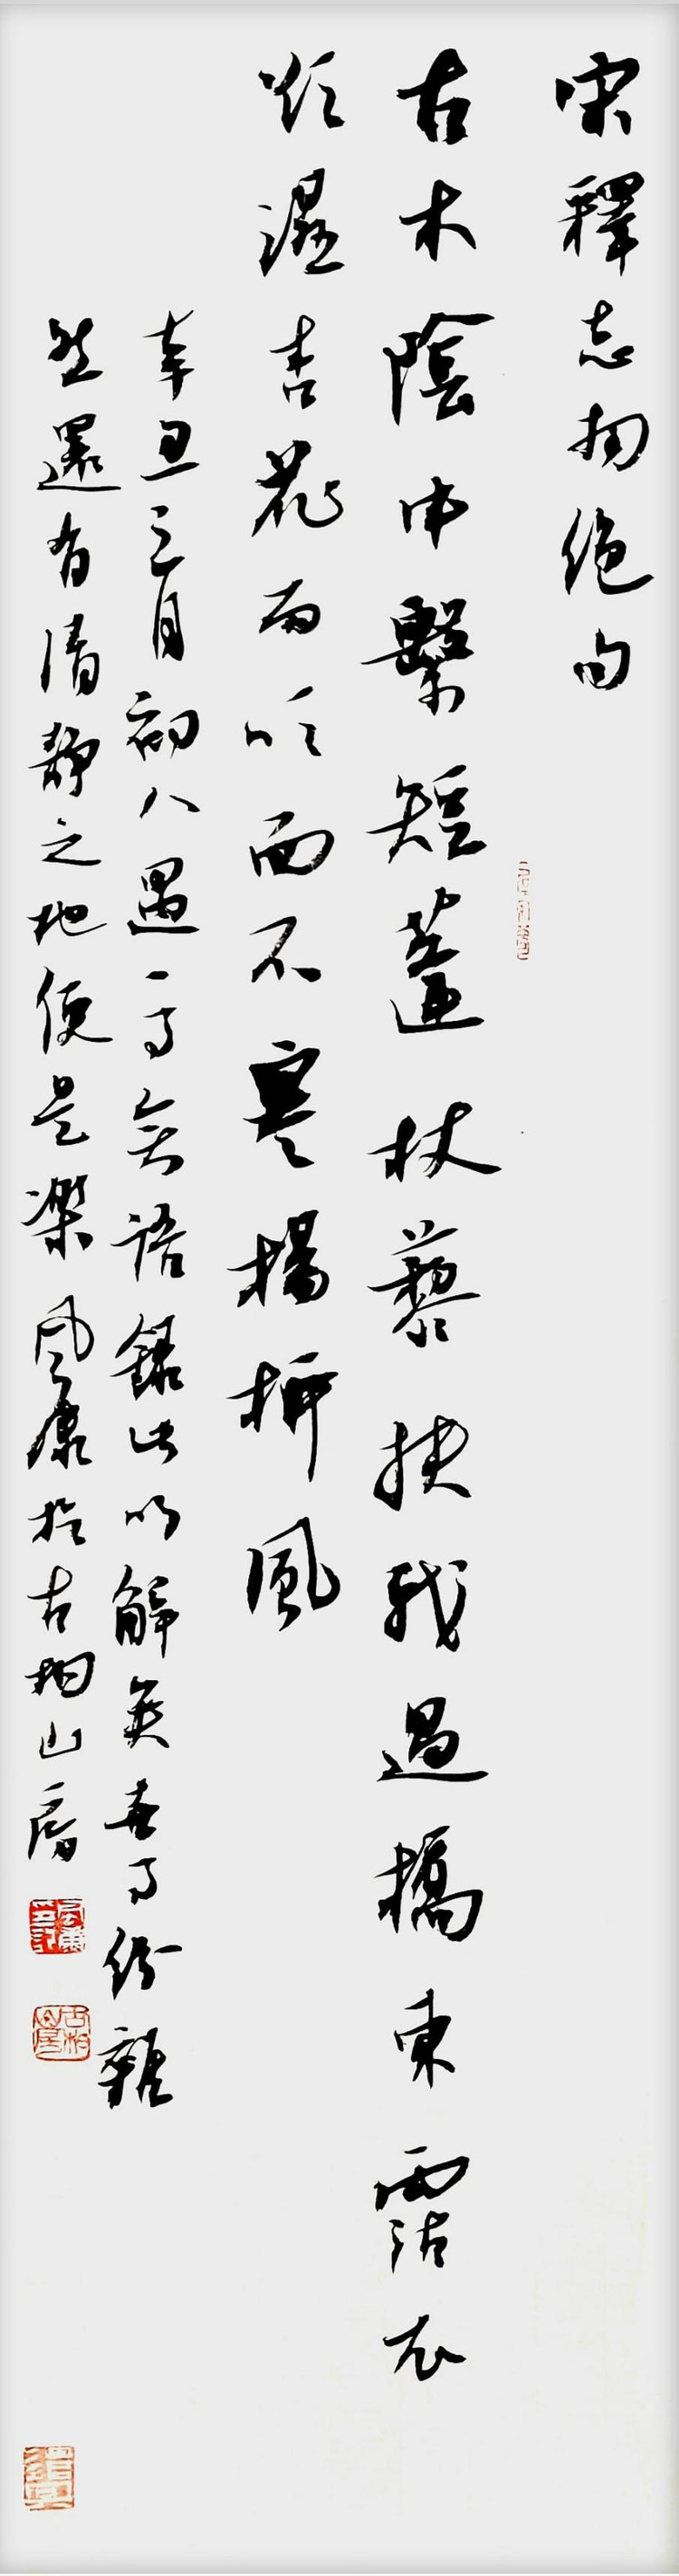 宋釋志絕句
古木陰中繫短蓬杖藜扶我過橋東霑衣
欲濕杏花雨吹面不寒楊柳風
辛丑三月初八遇一事無語錄此以解矣事紛雜
然還有清静之地便是樂风康於古柏山房
古柏山房